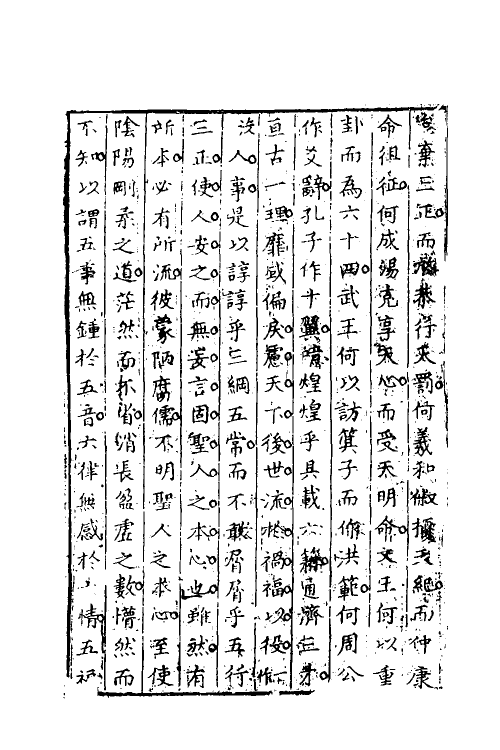 棄三正而龔恭行天罰何羲和俶擾天紀而仲康
命徂征何成湯克享天心而受天明命文王何以重
卦而為六十四武王何以訪箕子而作洪範何周公
作爻辭孔子作十翼噫煌煌乎具載六籍通濟三才
亘古一理靡或偏戾慮天下後世流於禍福以役
沒人事是以諄諄乎三綱五常而不敢屑屑乎五行
三正使人安之而無妄言固聖人之本心也雖然有
所本必有所流彼蒙陋腐儒不明聖人之本心至使
陰陽剛柔之道茫然而不省消長盈虛之數懵然而
不知以謂五事無鍾於五音六律無感於六情五